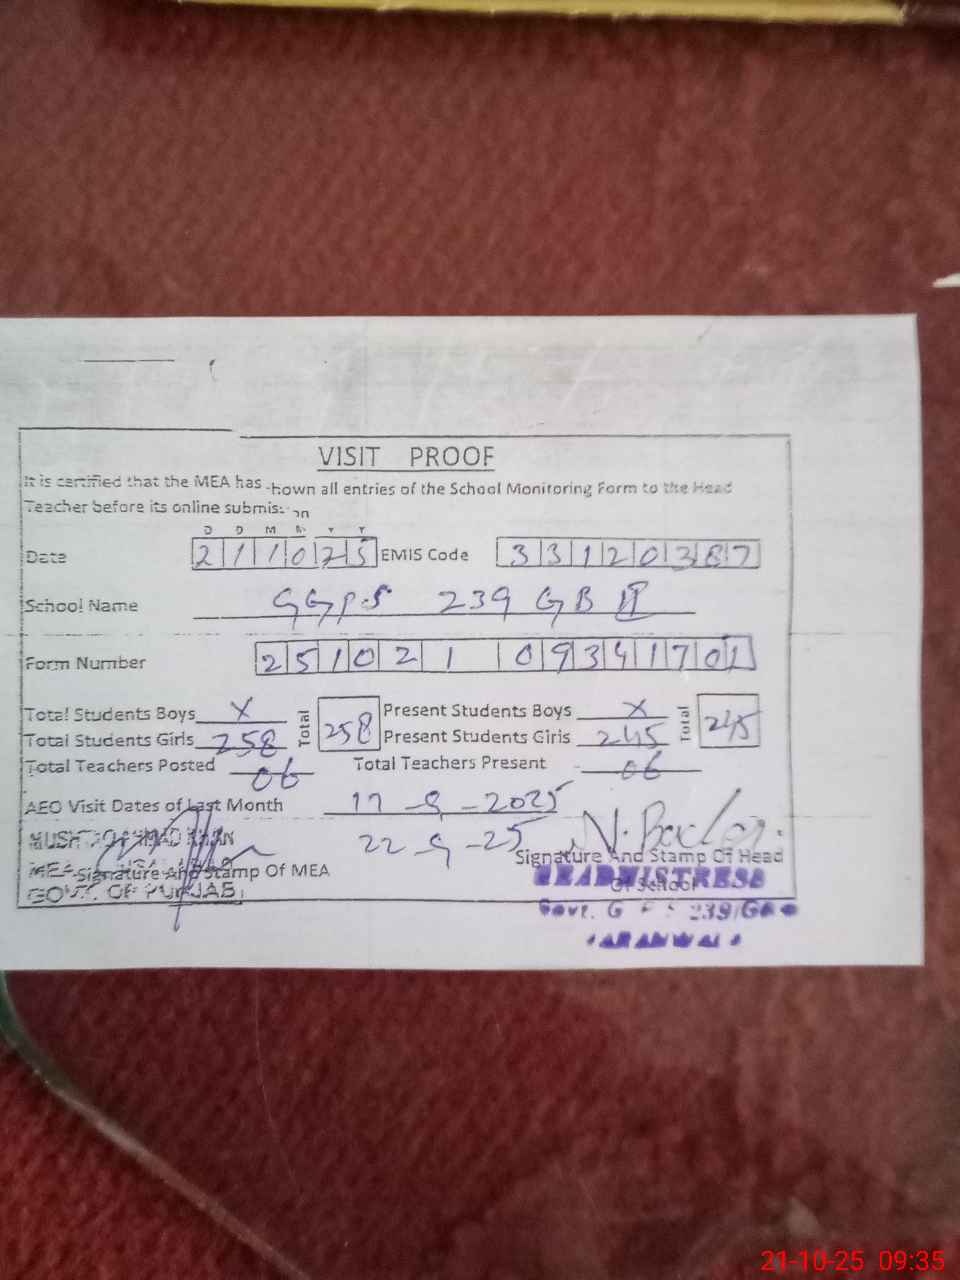 VISIT PROOF
It is certified that the MEA has hown all entries of the School Monitoring Form to the Head
Teacher before its online submis on
D D M M Y Y
Date 211025 EMIS Code 33120387
School Name GGPS 239 GB II
Form Number 251021 09341701
Total Students Boys X Total 258 Present Students Boys X Total 245
Total Students Girls 258 Present Students Girls 245
Total Teachers Posted 06 Total Teachers Present 06
AEO Visit Dates of Last Month 17-9-2025
22-9-25
AHMAD KHAN
MEA
Signature And Stamp Of MEA
GOVT. OF PUNJAB
Signature And Stamp Of Head
Of School
HEADMISTRESS
Govt. G 239/GB
21-10-25 09:35